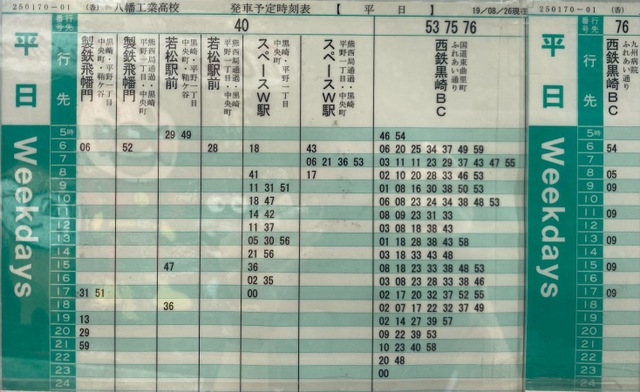 250170-01 (香) 八幡工業高校 発車予定時刻表 【 平 日 】 19/08/26現在
行先番号 40 53 75 76
平日 行先
黒崎・平野一丁目・中央町 製鉄飛幡門
熊西局通過・黒崎・平野一丁目・中央町 製鉄飛幡門
黒崎・平野一丁目・中央町・鞘ケ谷 若松駅前
熊西局通過・黒崎・平野一丁目・中央町 若松駅前
黒崎・平野一丁目・中央町 スペースW駅
熊西局通過・黒崎・平野一丁目・中央町 スペースW駅
国道東曲里町 ふれあい通り 西鉄黒崎BC
Weekdays
5時 29 49 46 54
6 06 52 28 18 43 06 20 25 34 37 49 59
7 06 21 36 53 03 11 11 23 29 37 43 47 55
8 41 17 02 10 20 28 33 46 53
9 11 31 51 01 08 16 30 38 50 53
10 18 47 06 08 23 24 34 38 48 53
11 14 42 08 09 23 31 33
12 11 37 03 08 18 38 43
13 05 30 56 01 18 28 38 43 58
14 21 56 03 18 33 43 48
15 47 36 08 18 23 33 38 48 53
16 02 35 03 08 23 28 33 38 46
17 31 51 00 02 17 20 32 37 52 55
18 36 02 07 17 22 32 37 49
19 13 02 14 27 39 57
20 29 09 22 39 53
21 59 10 23 40 58
22 20 48
23 00
24
250170-01 (香)
行先番号 76
平日 行先
九州病院 ふれあい通り 西鉄黒崎BC
Weekdays
5時
6 54
7
8 05
9 09
10
11 09
12
13 09
14
15 09
16
17 09
18
19
20
21
22
23
24